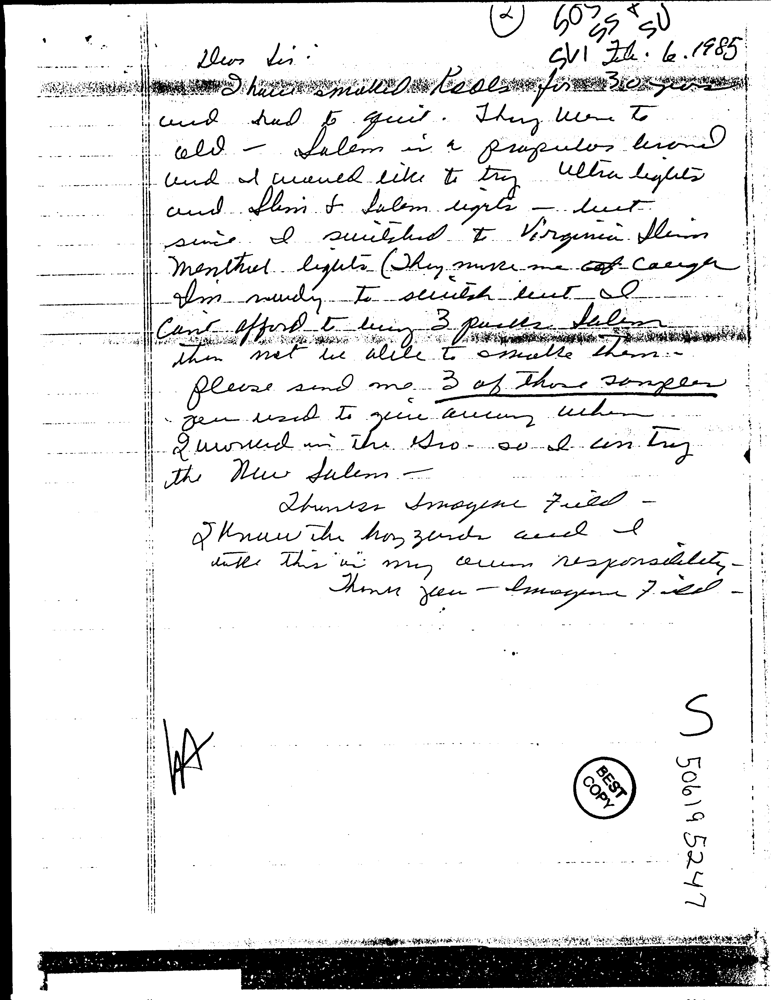 2
SOS SS & SU
SVI Feb. 6. 1985
Dear Sir:
I have smoked Kools for 30 years
and had to quit. They were to
old - Salem is a propulos brand
and I would like to try Ultra lights
and Slim & Salem lights - but
since I switched to Virginia Slim
Menthol lights (They make me cough
I'm ready to switch but I
Can't afford to buy 3 packs Salem
then not be able to smoke them -
please send me 3 of those samples
you used to give away when
I worked in the Gro - so I can try
the New Salem -
Thanks Imogene Field -
I Know the hazzards and I
take this is my own responsibility -
Thank you - Imogene Field -
BEST
COPY
S
50619 5247